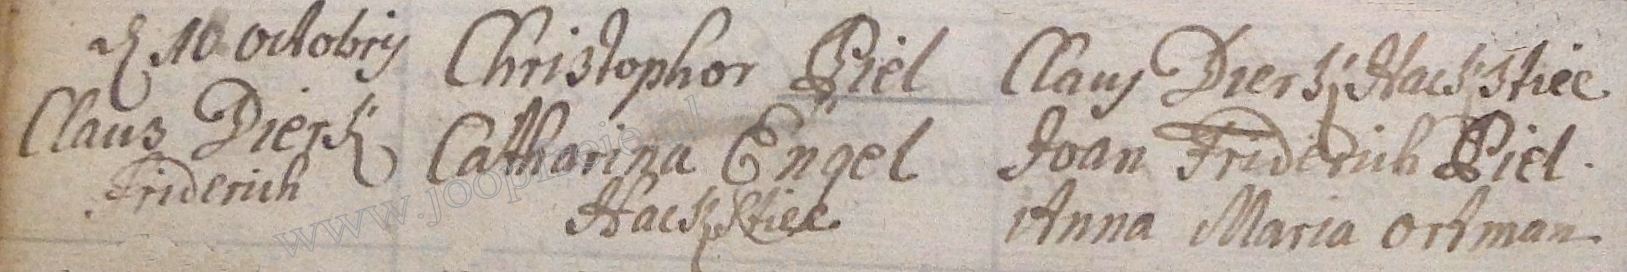 d 10 octobris
Claus Dierk
Friderich
Christophor Piel
Catharina Engel
Hackstiee
Claus Dierk Hackstiee
Joan Friderich Piel.
Anna Maria ortman